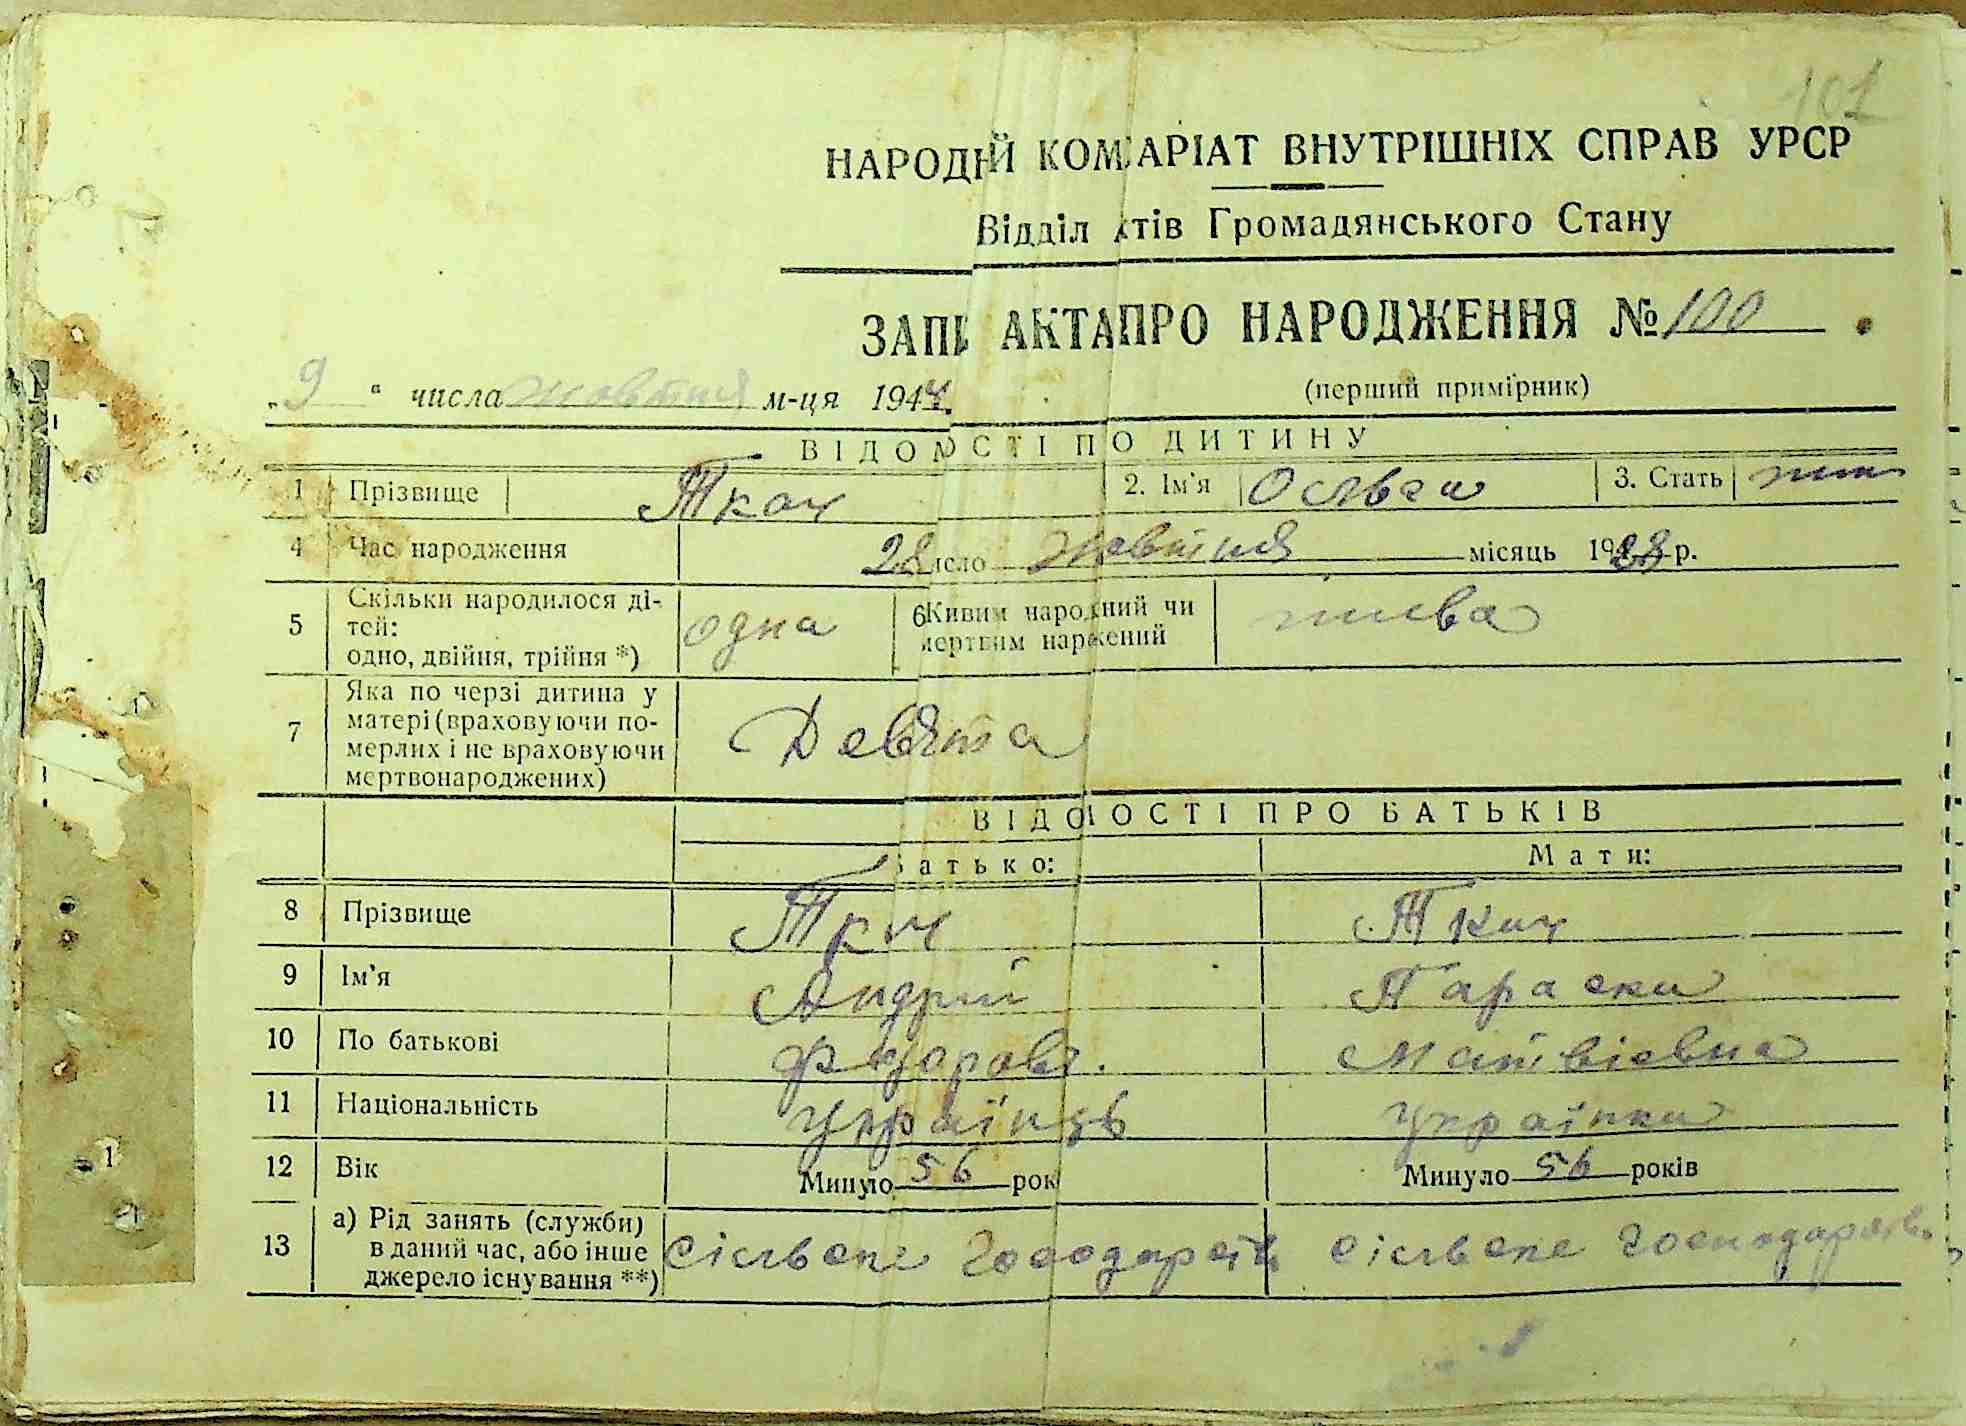 101
НАРОДНИЙ КОМІАРІАТ ВНУТРІШНІХ СПРАВ УРСР
Відділ ктів Громадянського Стану
ЗАПИ АКТАПРО НАРОДЖЕННЯ № 100
„ 9 “ числа жовтня м-ця 1944.
(перший примірник)
ВІДОМОСТІ ПО ДИТИНУ
1 Прізвище Ткач 2. Ім'я Ольга 3. Стать жін
4 Час народження 28 исло жовтня місяць 1928 р.
5 Скільки народилося ді-
тей:
одно, двійня, трійня *) одна
6 Живим народжний чи
мертвим народжений жива
7 Яка по черзі дитина у
матері (враховуючи по-
мерлих і не враховуючи
мертвонароджених) Девята
ВІДОМОСТІ ПРО БАТЬКІВ
Батько: Мати:
8 Прізвище Ткач Ткач
9 Ім'я Андрій Параска
10 По батькові Матвієвна
11 Національність Українць Українка
12 Вік Минуло 56 рок Минуло 56 років
13 а) Рід занять (служби)
в даний час, або інше
джерело існування **) сільське господарств сільське господарств
1